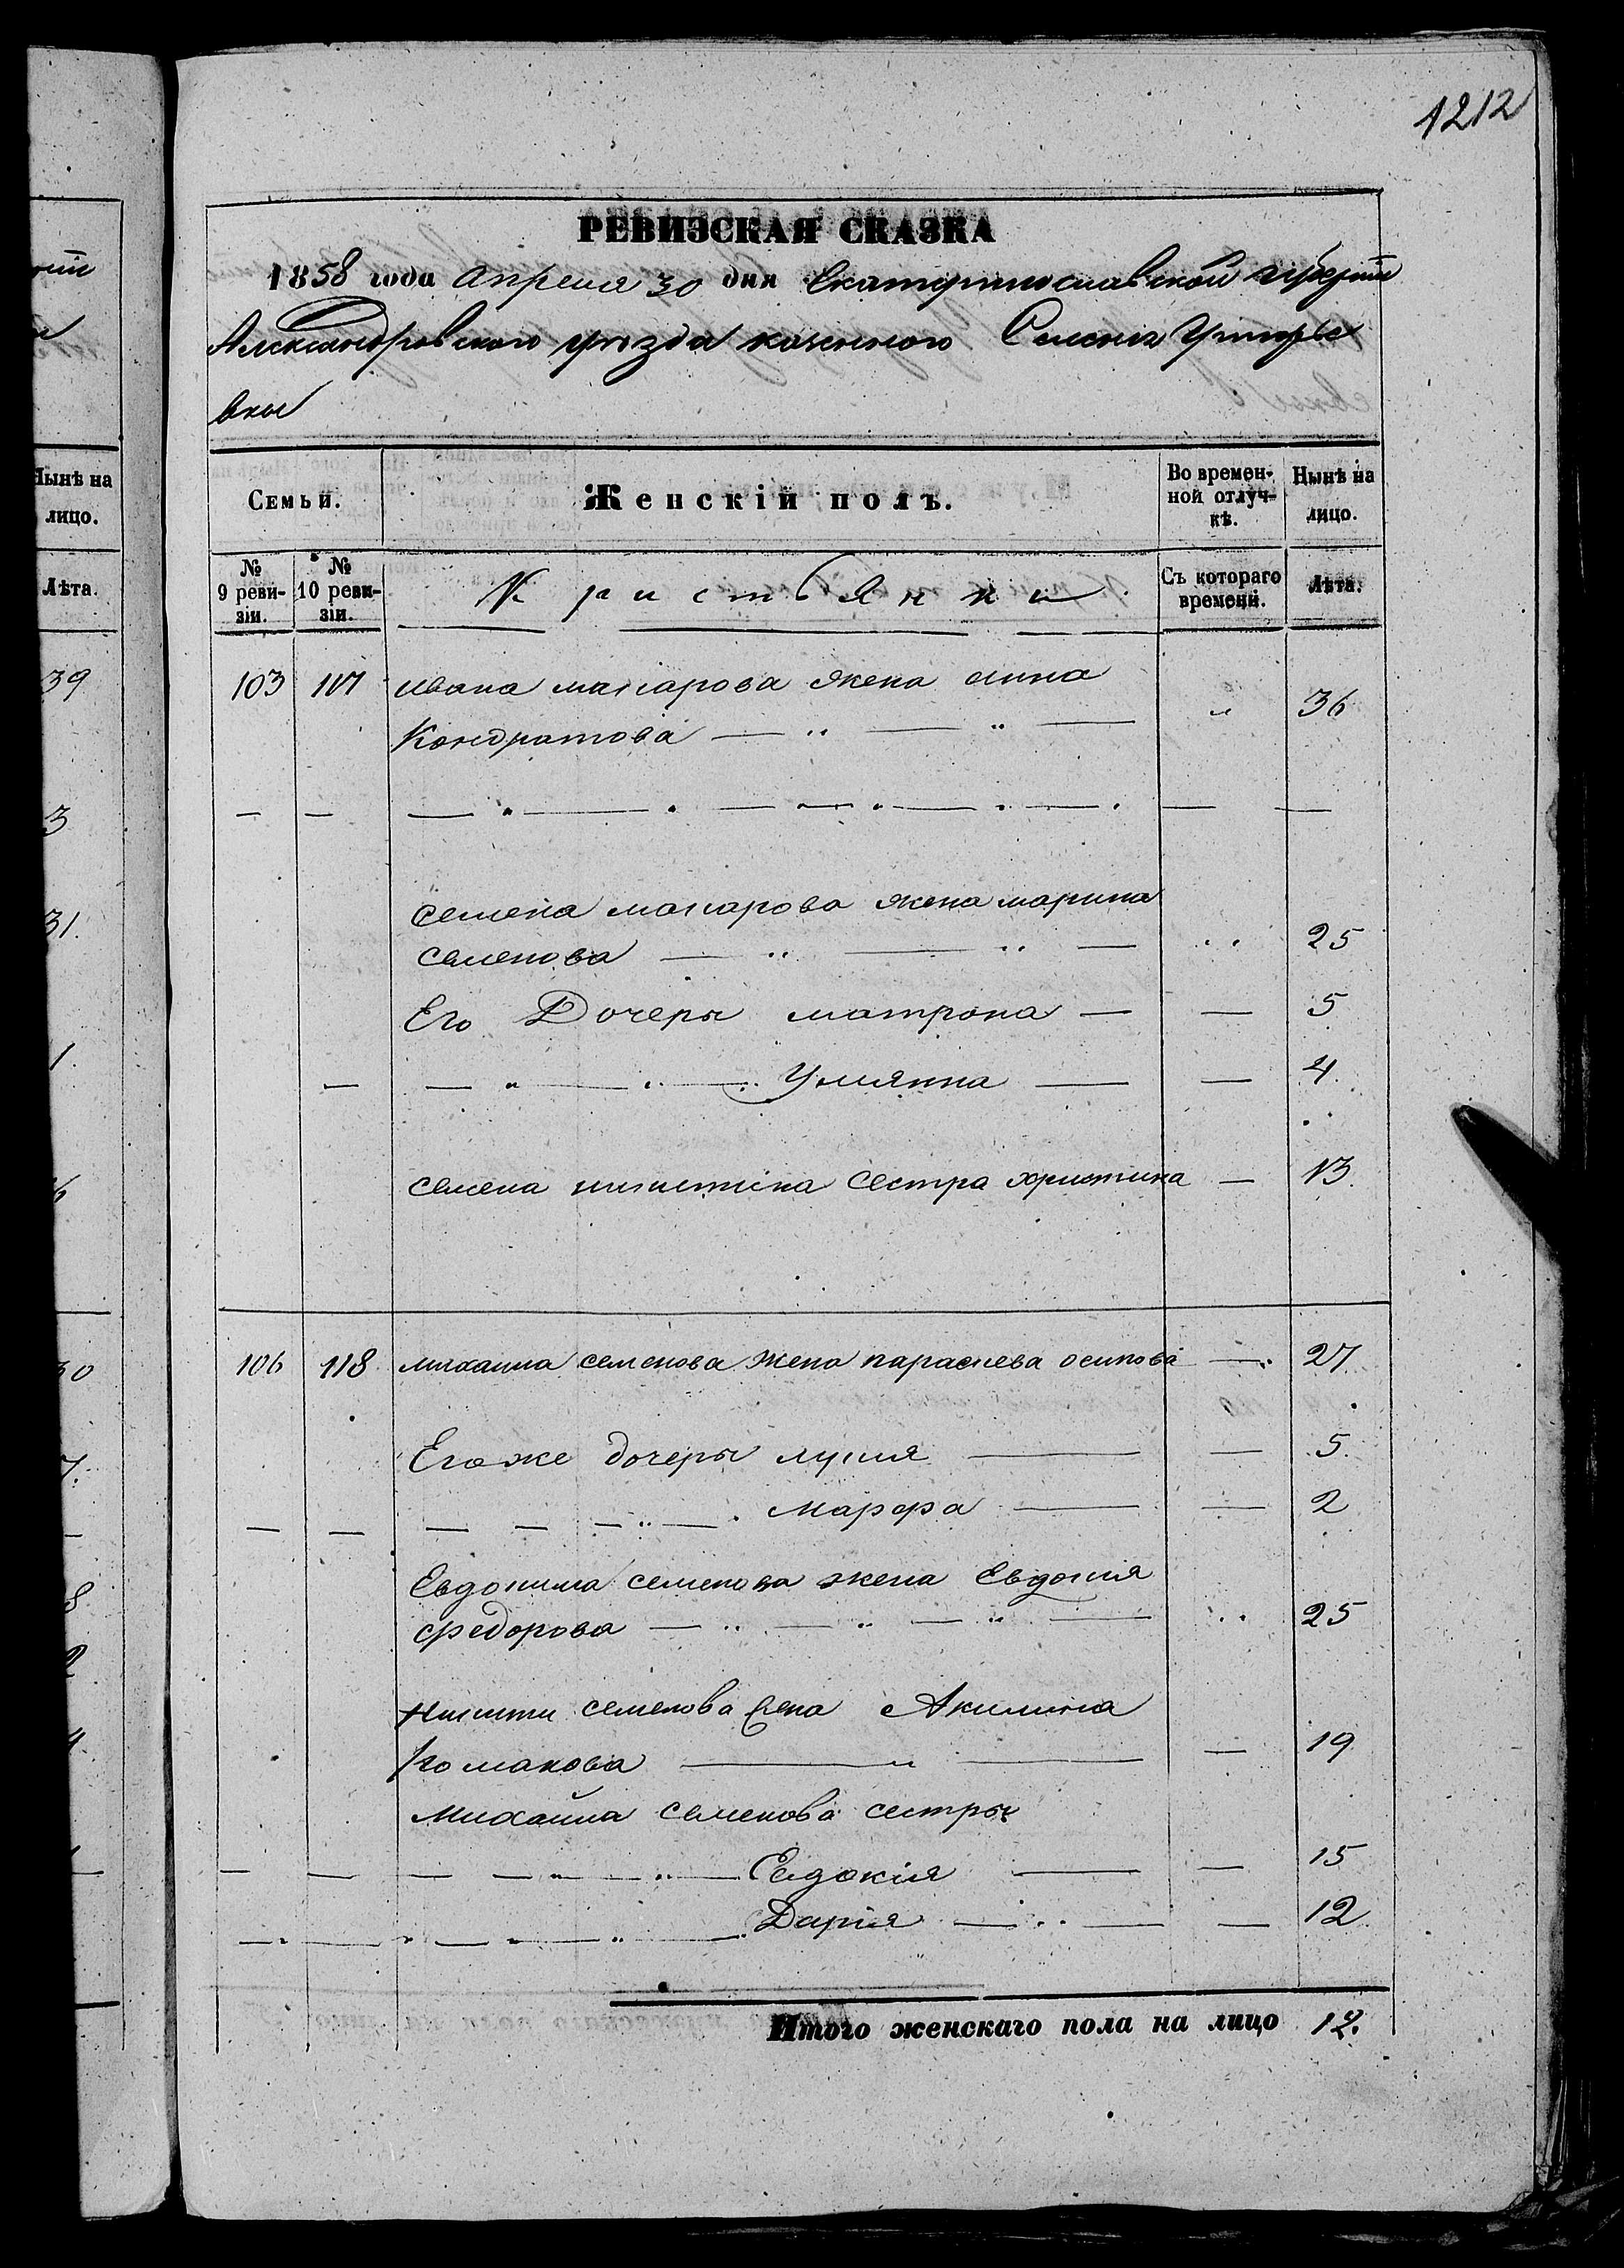 1212
РЕВИЗСКАЯ СКАЗКА
1858 года Апреля 30 дня Екатеринославской губерніи
Александровского уезда казенного Селенія
вки
Семьи. Женскій полъ. Во времен- Нынѣ на
ной отлуч- лицо.
кѣ.
№ № Кристьянки Съ котораго Лѣта.
9 реви- 10 реви- времени.
зіи. зіи.
103 117 Ивана макарова жена анна
Кондратова 36
семена макарова жена марина
семенова 25
Его Дочеры матрона 5
Улиянна 4
семена никитина сестра христина 13.
106 118 михаила семенова жена параскева осипова 27
Его же дочеры 5.
марфа 2
Евдокима семенова жена Евдокия
федорова 25
Никиты семенова жена Акилина
романова 19
Михайла семенова сестры
Евдокія 15
Дарія 12
Итого женскаго пола на лицо 12.
Нынѣ на
лицо.
Лѣта.
39
3
31.